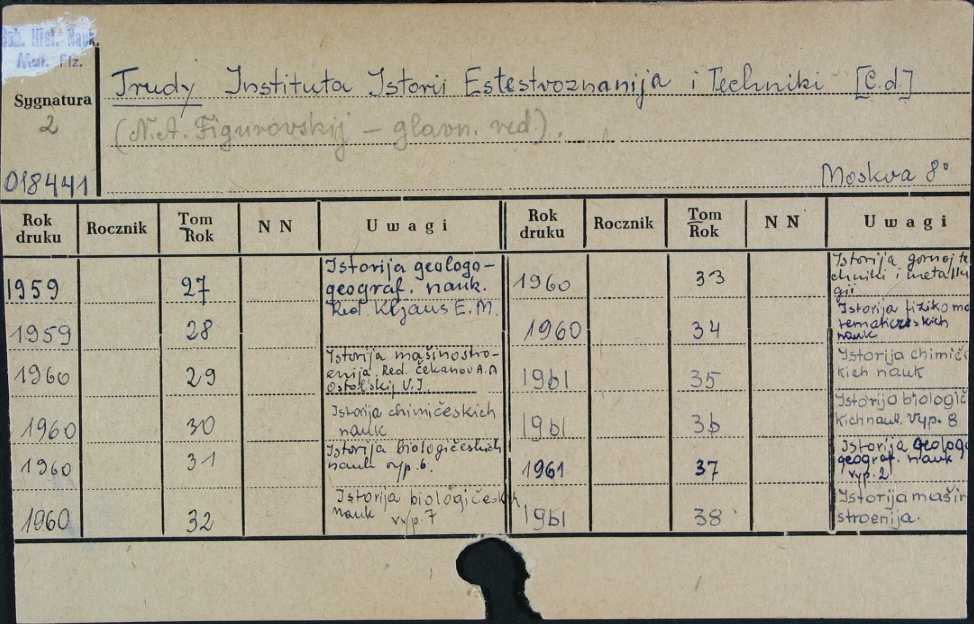 Bib. Hist. Nauk.
Mat. Fiz.
Sygnatura
2
018441
Trudy Instituta Istorii Estestvoznanija i Techniki [C.d.]
(N.A. Figurovskij – glavn. red).
Moskva 8°
Rok druku Rocznik Tom Rok N N Uwagi Rok druku Rocznik Tom Rok N N Uwagi
1959 27 Istorija geologo-
geograf. nauk.
Red. Kljaus E.M.
1959 28
1960 29 Istorija mašinostro-
enija. Red. Čekanov A.A
Ostol'skij V.I.
1960 30 Istorija chimičeskich
nauk
1960 31 Istorija biologičeskich
nauk vyp. 6.
1960 32 Istorija biologičeskich
nauk vyp. 7
1960 33 Istorija gornoj te
chniki i metallu
gii
1960 34 Istorija fiziko ma
tematičeskich
nauk
1961 35 Istorija chimičes
kich nauk
1961 36 Istorija biologič
kich nauk. Vyp. 8
1961 37 Istorija geologo
geograf. nauk
vyp. 2
1961 38 Istorija mašin
stroenija.